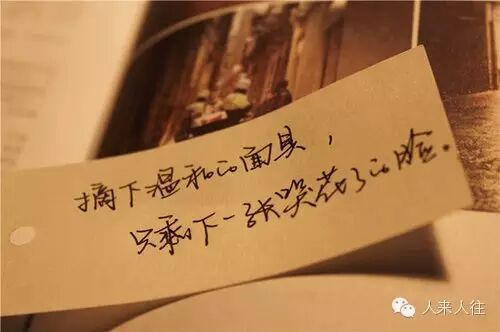 摘下温和的面具，
只剩下一张哭花了的脸。
人来人往